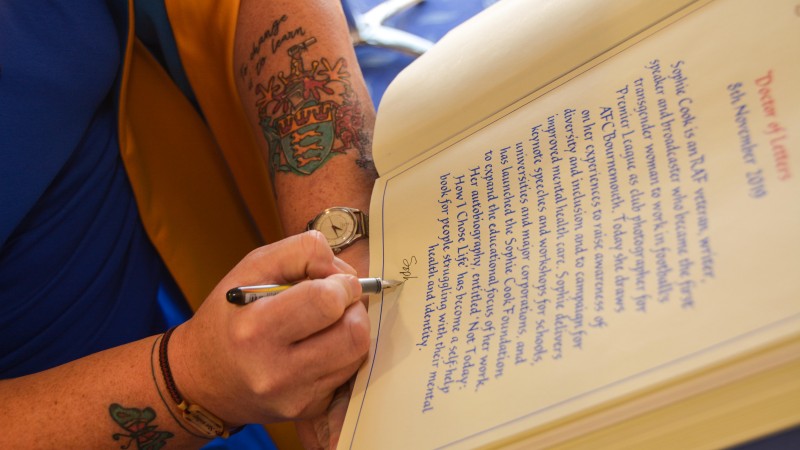 Doctor of Letters
8th November 2019
Sophie Cook is an RAF veteran, writer,
speaker and broadcaster who became the first
transgender woman to work in footballs
Premier League as club photographer for
AFC Bournemouth. Today she draws
on her experiences to raise awareness of
diversity and inclusion and to campaign for
improved mental health care. Sophie delivers
keynote speeches and workshops for schools,
universities and major corporations, and
has launched the Sophie Cook Foundation
to expand the educational focus of her work.
Her autobiography, entitled 'Not Today:
How I Chose Life' has become a self-help
book for people struggling with their mental
health and identity.
Soph
to change
to learn